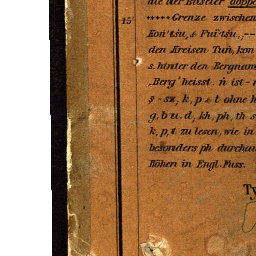 die der Büseler doppe
15'
+++++ Grenze zwischen
den Kreisen Tuṅ, kom
s. hinter den Bergnam
„Berg" heisst. ṅ ist -
ṣ - sz, k, p & t ohne h
g, b u. d, kh, ph, th - s
k, p, t zu lesen, wie in
besonders ph durchau
Höhen in Engl. Fuss.
Ty